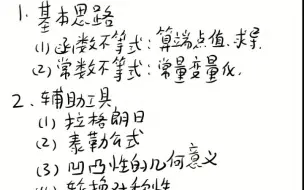 1. 基本思路
(1) 函数不等式：算端点值.求导.
(2) 常数不等式：常量变量化.
2. 辅助工具
(1) 拉格朗日
(2) 泰勒公式
(3) 凹凸性的几何意义